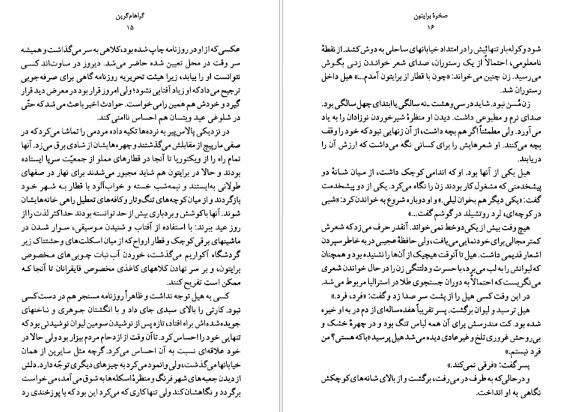 گراهام گرین
۱۵
عکسی که از او در روزنامه چاپ شده بود، کلاهی به سر می‌گذاشت و همیشه
سر وقت در محل تعیین شده حاضر می‌شد. دیروز در ساوت‌اند کسی
نتوانست او را بیابد، زیرا هیئت تحریریه روزنامه گاهی برای صرفه‌جویی
ترجیح می‌داد که او زیاد آفتابی نشود؛ ولی امروز قرار بود در معرض دید قرار
گیرد و خودش هم همین را می‌خواست. حوادث اخیر باعث می‌شد که حتّی
در شلوغی عید ویتسان هم احساس ناامنی کند.
در نزدیکی پالاس‌پیر به نرده‌ها تکیه داده مردمی را تماشا می‌کرد که در
صفی مارپیچ از مقابلش می‌گذشتند و چهره‌هایشان از شادی برق می‌زد. آنها
تمام راه را از ویکتوریا تا آنجا در قطارهای مملو از جمعیّت سرپا ایستاده
بودند و حالا در برایتون هم شاید مجبور می‌شدند برای نهار در صفهای
طولانی به‌ایستند و نیمه‌شب خسته و خواب‌آلود با قطار به شهر خود
بازگردند و از میان کوچه‌های تنگ و تار و کافه‌های تعطیل راهی خانه‌هایشان
شوند. آنها با کوشش و بردباری بیش از حد توانسته بودند حداکثر لذت را از
روز عید ببرند: با استفاده از آفتاب و شنیدن موسیقی، سوار شدن در
ماشینهای برقی کوچک و قطار ارواح که از میان اسکلت‌های وحشتناک زیر
گردشگاه آکواریم می‌گذشت، خوردن آب نبات چوبی‌های مخصوص
برایتون، و بر سر نهادن کلاههای کاغذی مخصوص قایقرانان تا آنجا که
ممکن است تفریح کنند.
کسی به هیل توجه نداشت و ظاهراً روزنامه مسنجر هم در دست کسی
نبود. کارتی را بالای سبدی جای داد و با انگشتان جوهری و ناخنهای
جویده شده‌اش براه افتاد، تازه پس از نوشیدن سومین لیوان نوشیدنی بود که
تنهایی خود را احساس کرد. تا آن وقت از ازدحام مردم بیزار بود ولی حالا در
خود علاقه‌ای نسبت به آن احساس می‌کرد. گرچه مثل سایرین از همان
خیابانها می‌گذشت، ولی وانمود می‌کرد به چیزهای دیگری توجّه دارد. دلش
از دیدن جعبه‌های شهر فرنگ و منظرهٔ اسکله‌ها به شوق می‌آمد، می‌خواست
برگردد و نگاهشان کند ولی تنها کاری که می‌کرد این بود که با پوزخندی رد
صخرهٔ برایتون
۱۶
شود و کوله‌بار تنهائیش را در امتداد خیابانهای ساحلی به دوش کشد. از نقطهٔ
نامعلومی، احتمالاً از یک رستوران، صدای شعر خواندن زنی بگوش
می‌رسید. زن چنین می‌خواند: «چون با قطار از برایتون آمدم...» هیل داخل
رستوران شد.
زن مُسن نبود. شاید در سی و هشت ـ نه سالگی یا ابتدای چهل سالگی بود.
صدای نرم و مطبوعی داشت. دیدن او منظرهٔ شیر خوردن نوزادان را به یاد
می‌آورد. ولی مطمئناً اگر هم بچه داشت، از آن زنهایی نبود که خود را وقف
بچه می‌کنند. او شعرهایش را برای کسانی نگه می‌داشت که ارزش آن را
دریابند.
هیل یکی از آنها بود. او که اندامی کوچک داشت، از میان شانهٔ دو
پیشخدمتی که مشغول کار بودند زن را نگاه می‌کرد. یکی از دو پیشخدمت
گفت: «یکی دیگر هم بخوان لیلی.» و او دوباره شروع به خواندن کرد: «شبی
در کوچه‌ای، لرد روتشیلد در گوشم گفت...»
هیچ وقت بیش از یکی دو خط نمی‌خواند. آنقدر حرف می‌زد که شعرش
کمتر مجالی برای خودنمایی می‌یافت، ولی حافظهٔ عجیبی در به خاطر سپردن
اشعار قدیمی داشت. هیل تا آنوقت هیچیک از آن‌ها را نشنیده بود و همچنان
که لیوانش را به لب می‌برد، با حسرت و دلتنگی زن را در حال خواندن شعری
می‌نگریست که احتمالاً به دوران جستجوی طلا در استرالیا مربوط می‌شد.
در این وقت کسی هیل را از پشت سر صدا زد و گفت: «فرد، فرد.»
هیل ترسید و لیوان برگشت. پسر تقریباً هفده‌ساله‌ای از دم در به او خیره
شده بود. کت مندرسش برای آن همه لباس تنگ بود و در چهرهٔ خشک و
بی‌روحش غروری تلخ و غیرعادی دیده می‌شد. هیل پرسید: «با که هستی؟ من
فرد نیستم.»
پسر گفت: «فرقی نمی‌کند.»
و در حالی که به طرف در می‌رفت، برگشت و از بالای شانه‌های کوچکش
نگاهی به او انداخت.